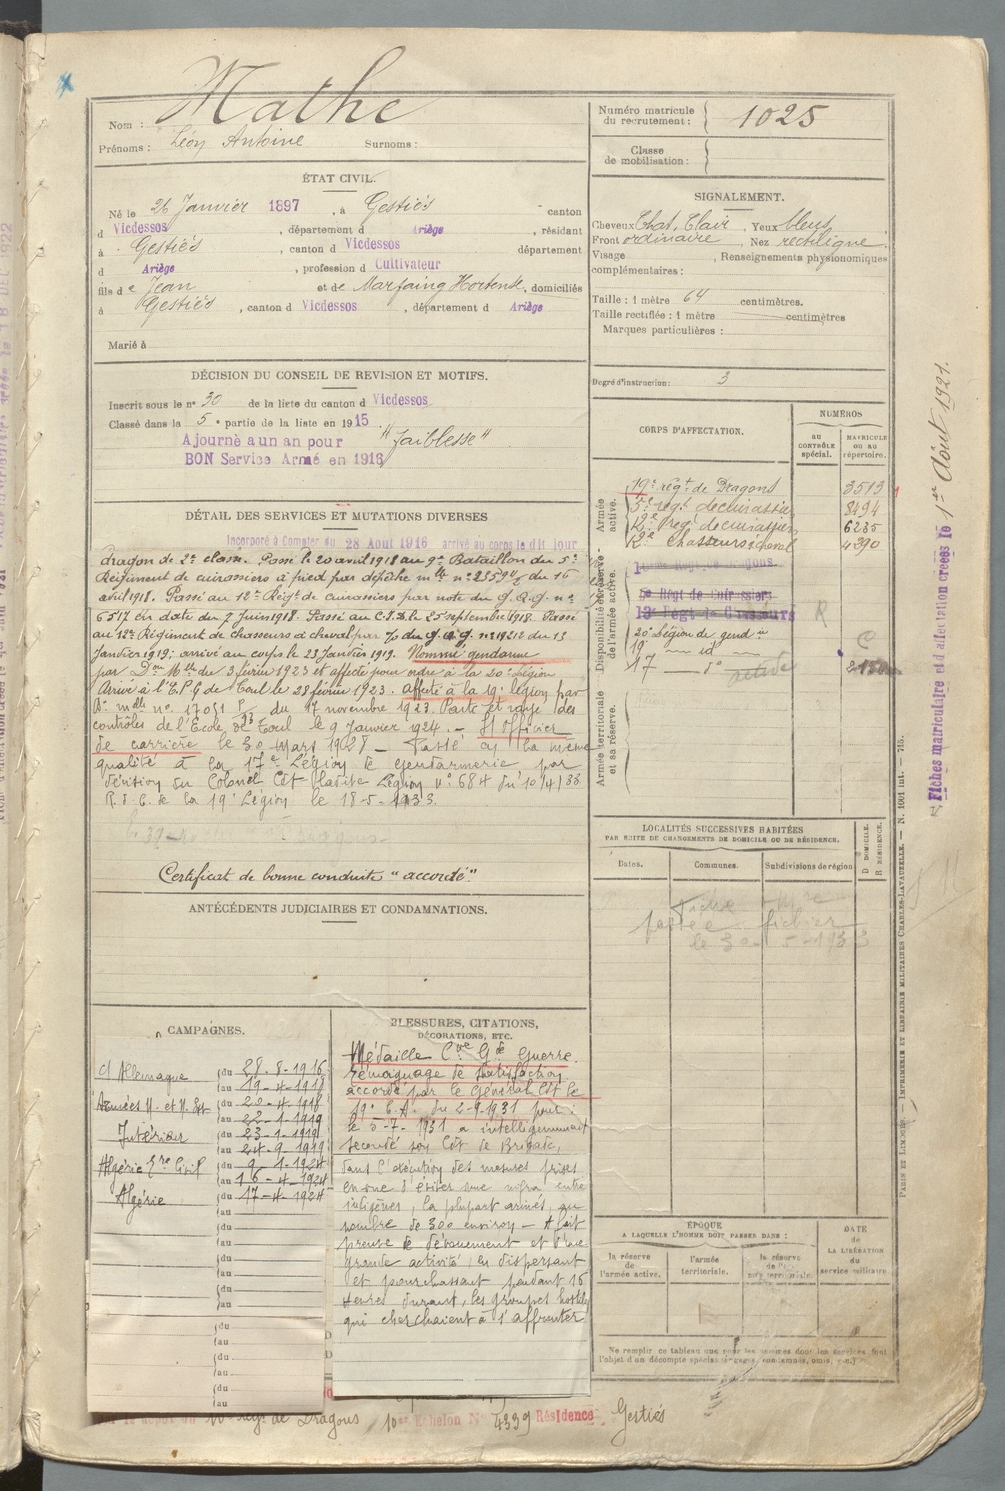 Nom : Mathe
Prénoms : Léon Antoine Surnoms :
ÉTAT CIVIL.
Né le 26 Janvier 1897, à Gestiés canton
d Vicdessos, département d Ariège, résidant
à Gestiés, canton d Vicdessos département
d Ariège, profession d Cultivateur
fils de Jean et de Marfaing Hortense, domiciliés
à Gestiés, canton d Vicdessos, département d Ariège
Marié à
DÉCISION DU CONSEIL DE REVISION ET MOTIFS.
Inscrit sous le n° 30 de la liste du canton d Vicdessos
Classé dans la 5e partie de la liste en 1915
Ajourné a un an pour "faiblesse"
BON Service Armé en 1916
DÉTAIL DES SERVICES ET MUTATIONS DIVERSES
Incorporé à Compter du 28 Aout 1916 arrivé au corps le dit jour
dragon de 2e classe. Passé le 20 avril 1918 au 9e Bataillon du 5e
Régiment de cuirassiers à pied par dépêche mlle n° 23590 du 16
avril 1918. Passé au 12e Régt de cuirassiers par note du G.Q.G. n°
6517 en date du 7 juin 1918. Passé au C.I.D. le 25 septembre 1918. Passé
au 12e Régiment de chasseurs à cheval par du G.Q.G. n° 19212 du 13
Janvier 1919; arrivé au corps le 23 Janvier 1919. Nommé gendarme
par Don Mlle du 3 février 1923 et affecté pour ordre à la 20e Légion
Arrivé à l'E.P.G de Toul le 28 février 1923. affecté à la 19e légion par
Dn mlle n° 17051 du 17 novembre 1923. Parti et rayé des
contrôles de l'École de Toul le 9 Janvier 1924. — S/ Officier
de carrière le 30 Mars 1928 — Passé en la même
qualité à la 17e Légion de Gendarmerie par
décision du Colonel Cdt la dite Légion N° 684 du 10/4/33
R.d.C. de la 19e Légion le 18-5-1933.
Certificat de bonne conduite "accordé".
ANTÉCÉDENTS JUDICIAIRES ET CONDAMNATIONS.
CAMPAGNES.
c/ Allemagne (du 28-8-1916
(au 19-4-1918
Armées N. et N. Est (du 20-4-1918
(au 22-1-1919
Intérieur (du 23-1-1919
(au 24-9-1919
Algérie Gre Civil (du 9-1-1924
(au 16-4-1924
Algérie (du 17-4-1924
(au
(du
(au
(du
(au
(du
(au
(du
(au
(du
(au
(du
(au
BLESSURES, CITATIONS,
DÉCORATIONS, ETC.
Médaille Cve Gde Guerre.
Témoignage de satisfaction
accordé par le Général Cdt le
19e C.A. du 2-9-1931 pour :
le 5-7-1931 a intelligemment
secondé son Cdt de Brigade,
dans l'exécution des mesures prises
en vue d'éviter une entre
indigènes, la plupart armés, au
nombre de 300 environ — A fait
preuve de dévouement et d'une
grande activité, en dispersant
et pourchassant pendant 16
heures durant, les groupes hostiles
qui cherchaient à s'affronter
régt de Dragons 10me Echelon N° 4339 Résidence Gestiés
Numéro matricule
du recrutement : 1025
Classe
de mobilisation :
SIGNALEMENT.
Cheveux Chat. Clair, Yeux bleus
Front ordinaire, Nez rectiligne.
Visage , Renseignements physionomiques
complémentaires :
Taille : 1 mètre 64 centimètres.
Taille rectifiée : 1 mètre centimètres
Marques particulières :
Degré d'instruction : 3
CORPS D'AFFECTATION.
NUMÉROS
AU
CONTRÔLE
spécial.
MATRICULE
OU AU
répertoire.
Armée
active.
19e régt de Dragons 3513
5e régt de cuirassiers 8494
12e régt de cuirassiers 6235
12e Chasseurs à cheval 4390
Disponibilité et réserve
de l'armée active.
5e Régt de Cuirassiers
R
20e Légion de gendie
19 — id — C
17 — d° active
Armée territoriale
et sa réserve.
LOCALITÉS SUCCESSIVES HABITÉES
PAR SUITE DE CHANGEMENTS DE DOMICILE OU DE RÉSIDENCE.
Dates.
Communes.
Subdivisions de région
D DOMICILE.
R RÉSIDENCE.
Fiche
passée fichier
le 30-5-1933
ÉPOQUE
A LAQUELLE L'HOMME DOIT PASSER DANS :
la réserve
de
l'armée active.
l'armée
territoriale.
la réserve
de l'armée territoriale.
DATE
de
LA LIBÉRATION
du
service militaire.
Fiches matriculaire et d'affectation créées le 1er Août 1921.
PARIS ET LIMOGES. — IMPRIMERIE ET LIBRAIRIE MILITAIRES CHARLES-LAVAUZELLE. — N. 1001 int. — 715.